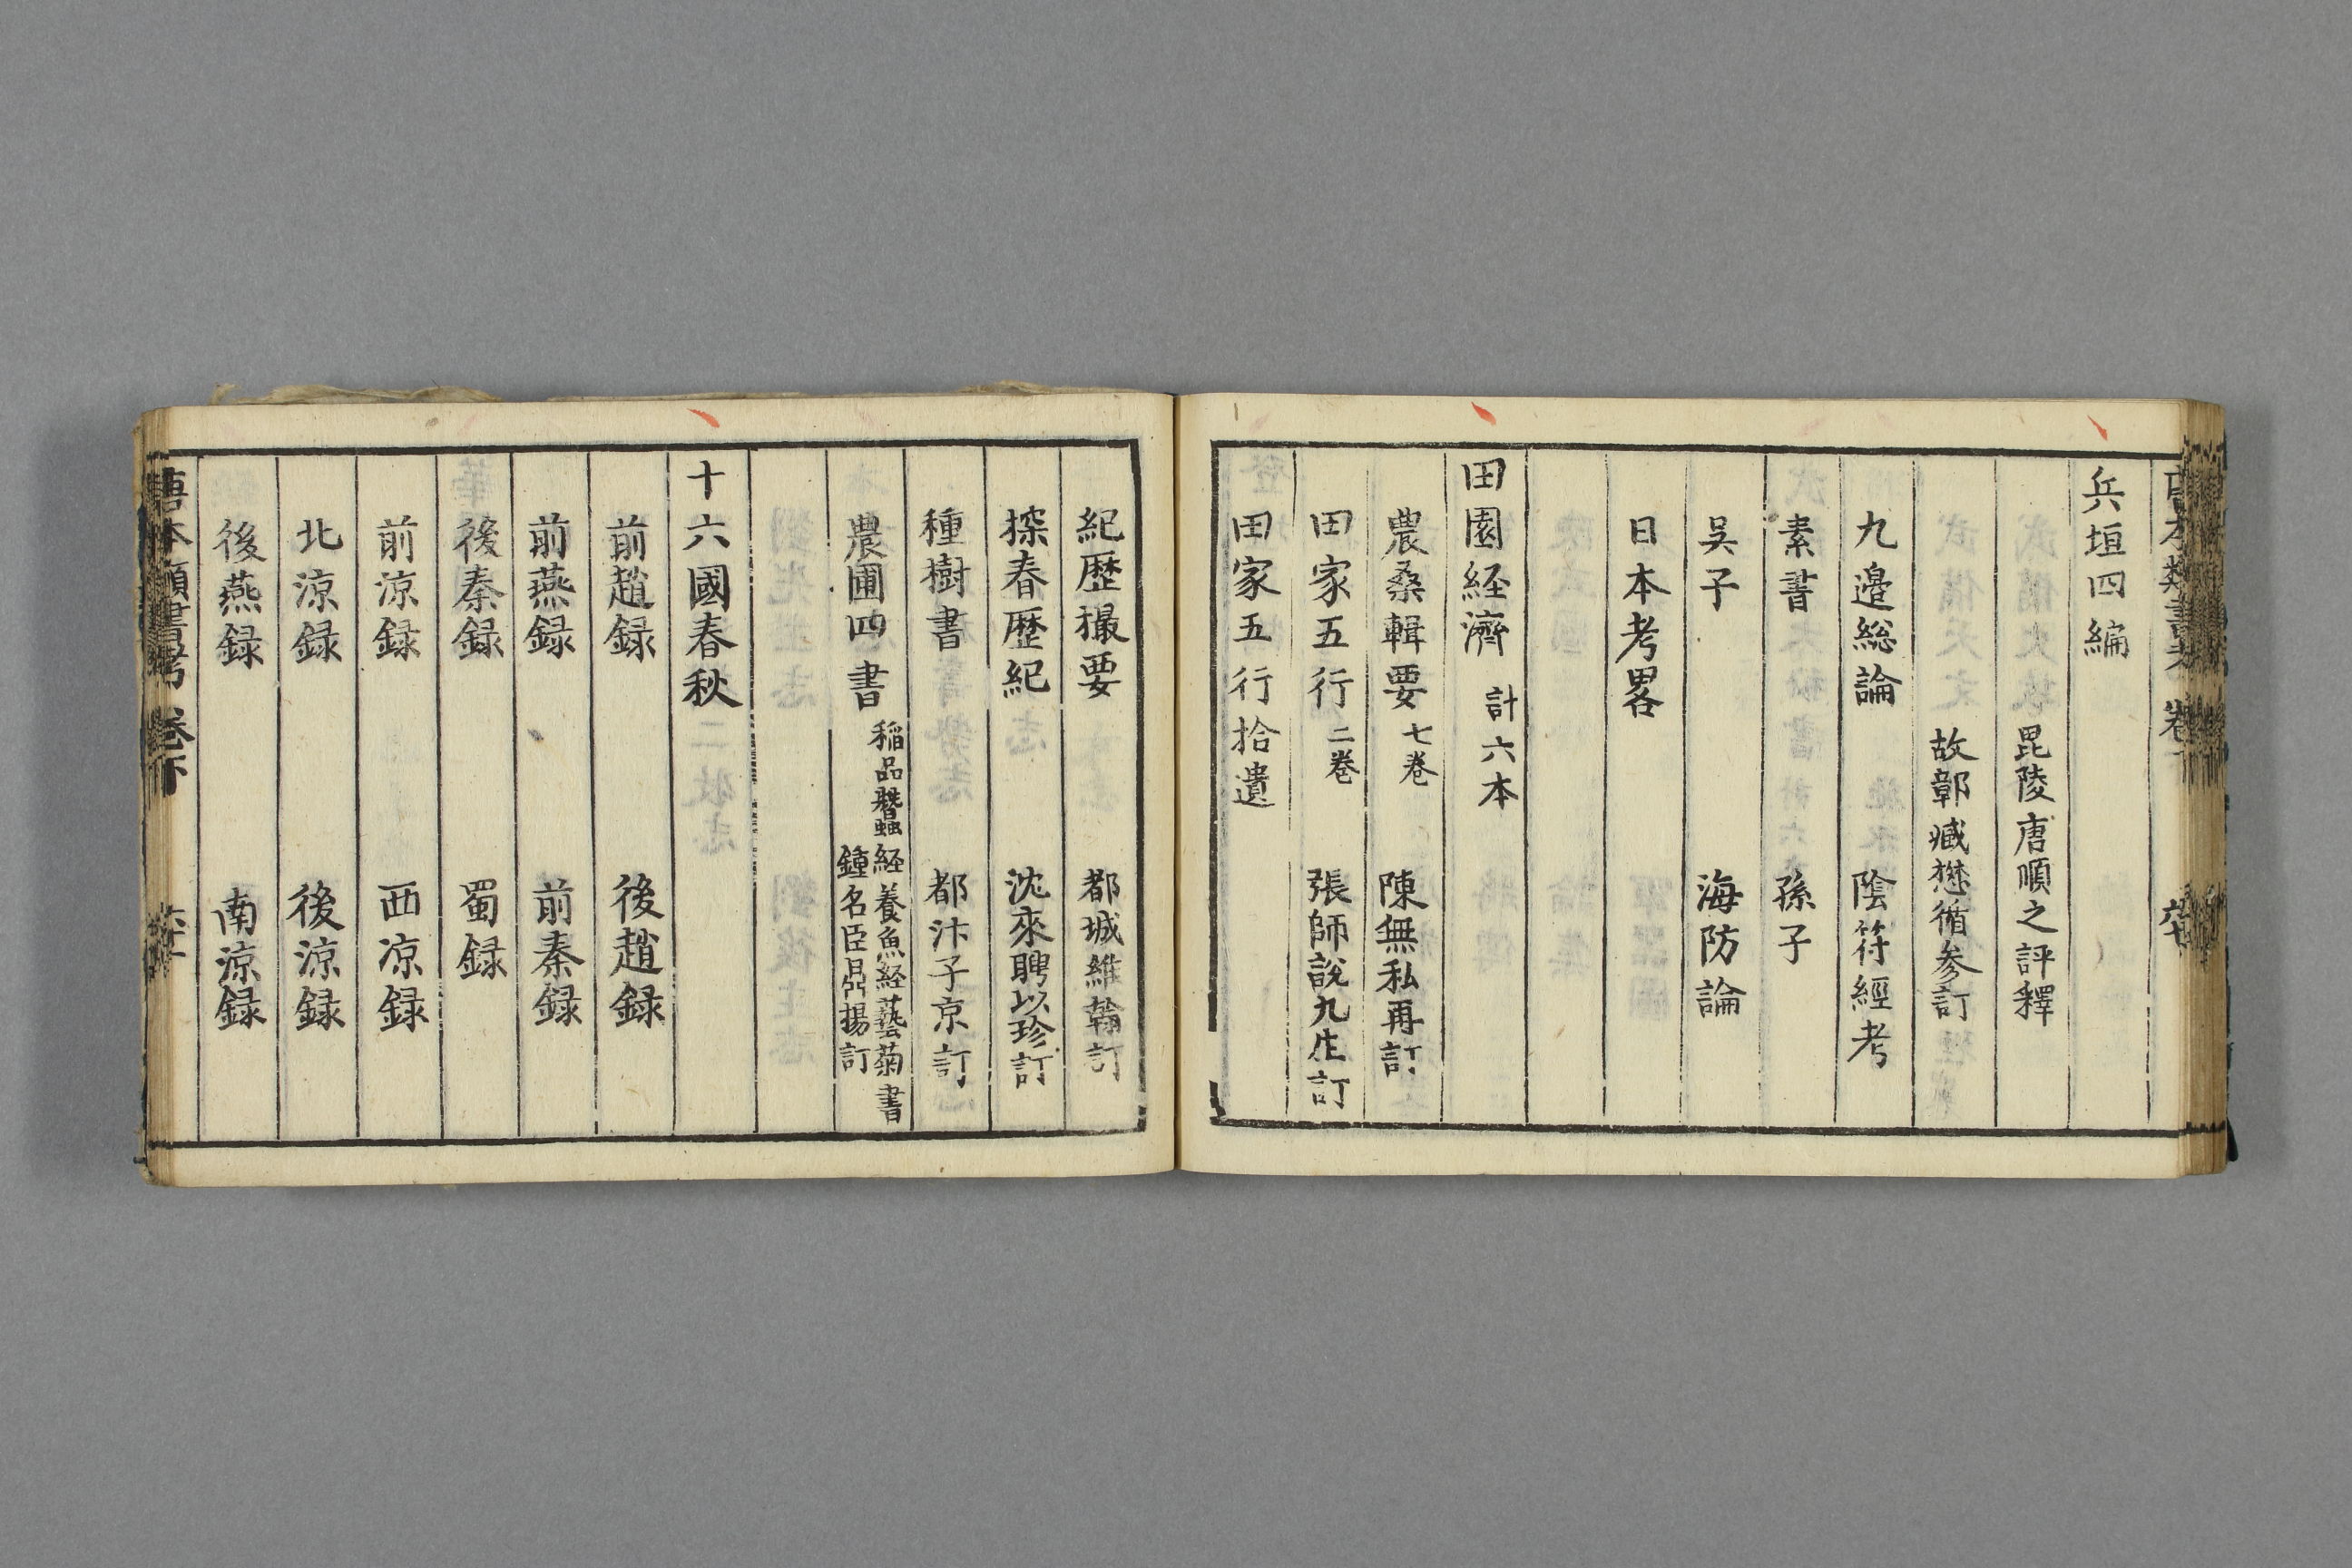 兵垣四編
毘陵唐順之評釋
故鄣臧懋循参訂
九邉総論 陰符經考
素書 孫子
吳子 海防論
日本考畧
田園経濟 計六本
農桑輯要 七巻 陳無私再訂
田家五行 二巻 張師說九生訂
田家五行拾遺
紀歴撮要 都城維翰訂
探春歴紀 沈來聘以珍訂
種樹書 都汴子京訂
農圃四書 稲品蠶経養魚経藝菊書
鍾名臣訂
十六國春秋
前趙録 後趙録
前燕録 前秦録
後秦録 蜀録
前凉録 西凉録
北凉録 後凉録
後燕録 南凉録
唐本類書考 巻下